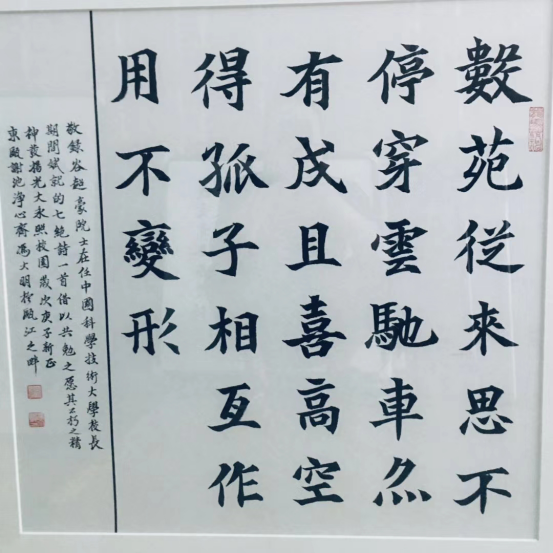 數苑從來思不
停穿雲馳車亦
有成且喜高空
得孤子相互作
用不變形
敬錄谷超豪院士在任中國科學技術大學校長
期間賦記的七絕詩一首借以共勉之愿其不朽之精
神發揚光大永照校園歲次庚子新正
東甌謝池淨心齋馮大明於甌江之畔